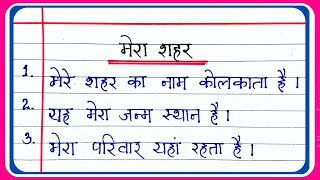 मेरा शहर
1. मेरे शहर का नाम कोलकाता है।
2. यह मेरा जन्म स्थान है।
3. मेरा परिवार यहां रहता है।